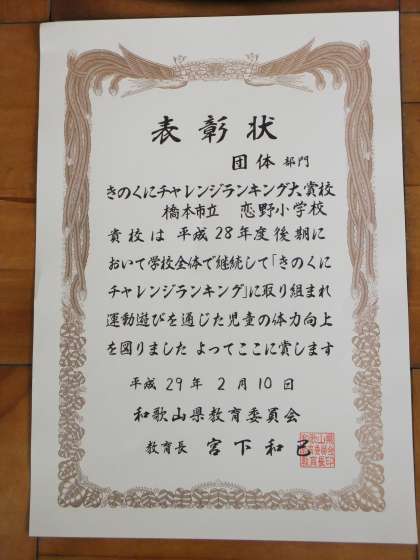 表彰状
団体 部門
きのくにチャレンジランキング大賞校
橋本市立 恋野小学校
貴校は 平成28年度後期に
おいて学校全体で継続して「きのくに
チャレンジランキング」に取り組まれ
運動遊びを通じた児童の体力向上
を図りました よってここに賞します
平成 29 年 2 月 10 日
和歌山県教育委員会
教育長 宮下和己